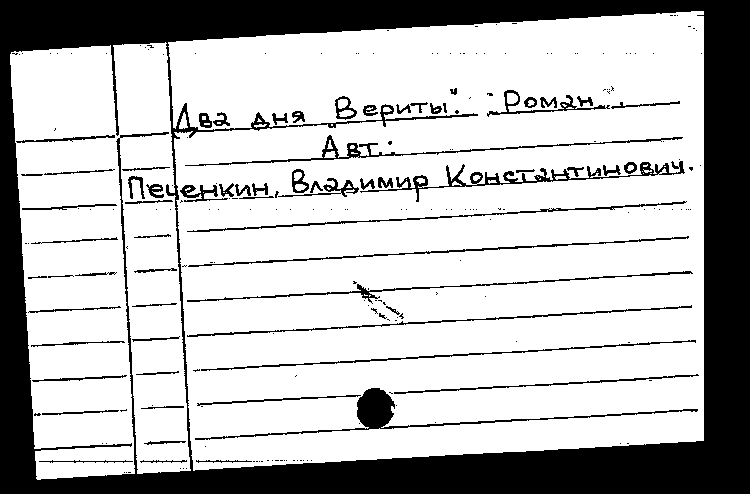 Два дня "Вериты". Роман.
Авт.:
Печенкин, Владимир Константинович.